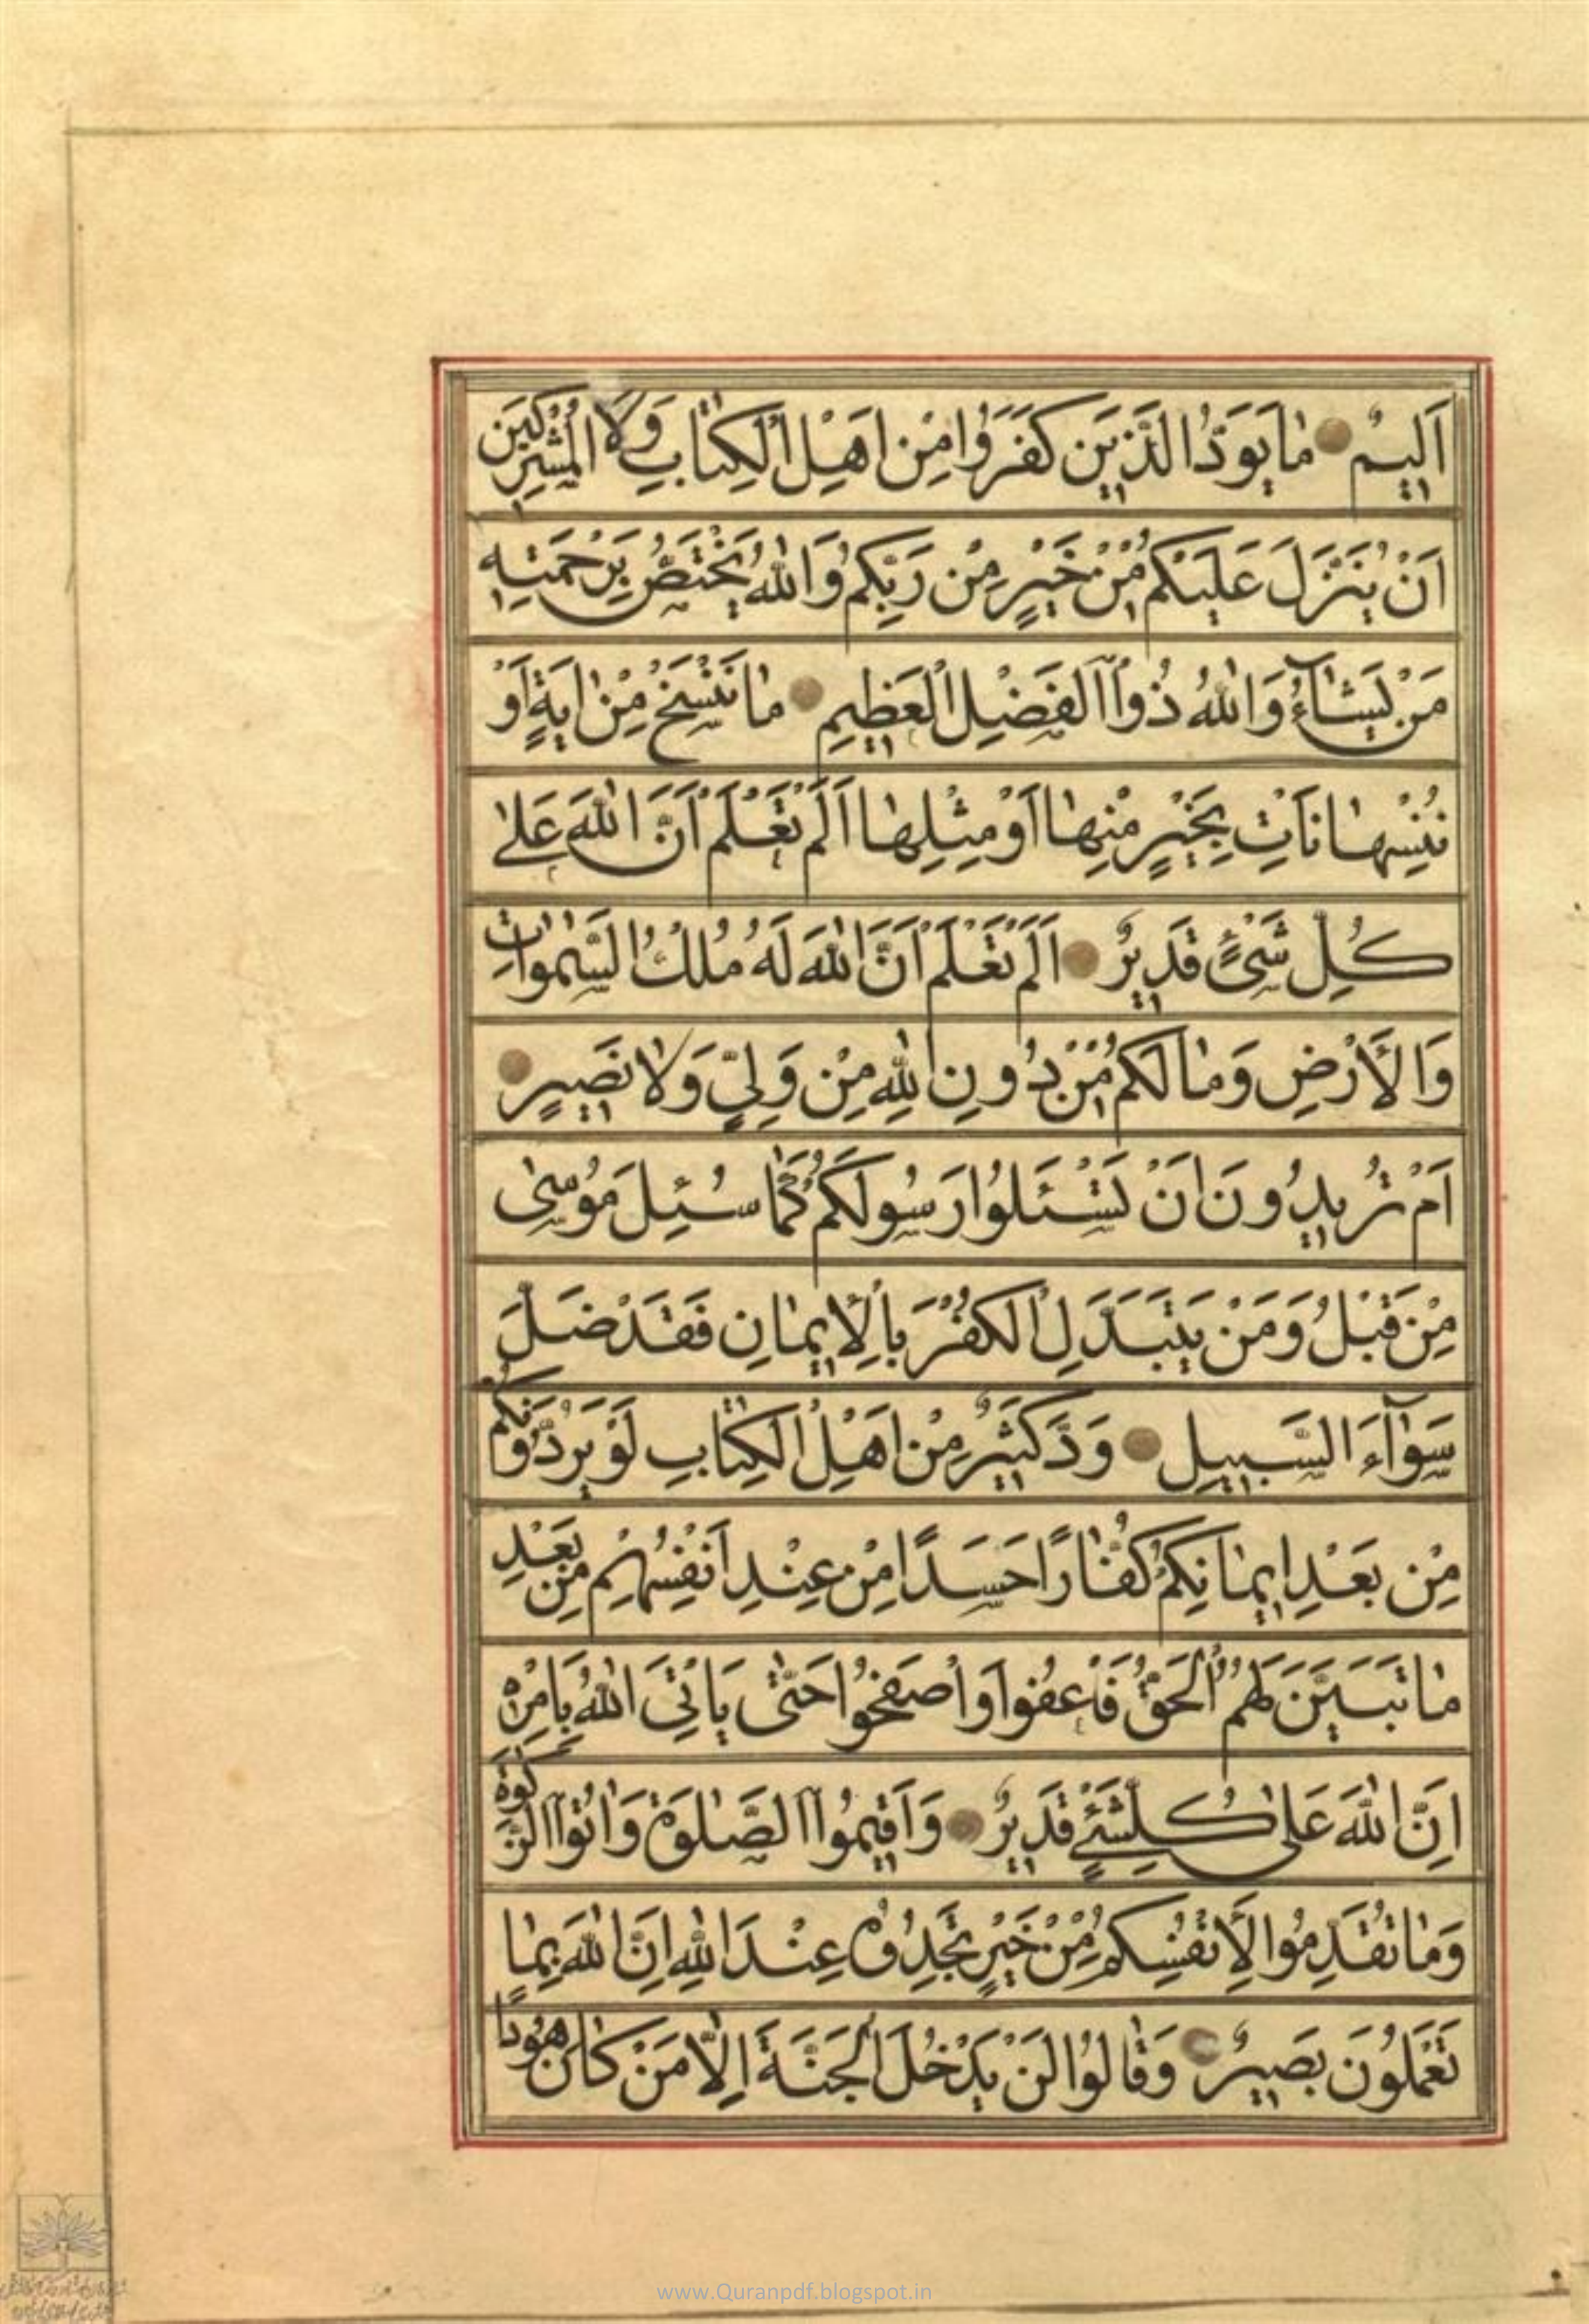 اَلیمٌ مٰا یَوَدُّ الَّذینَ کَفَرُوا مِنْ اَهْلِ الْکِتٰابِ وَلَا الْمُشْرِکینَ
اَنْ یُنَزَّلَ عَلَیْکُمْ مِنْ خَیْرٍ مِنْ رَبِّکُمْ وَاللّٰهُ یَخْتَصُّ بِرَحْمَتِهِ
مَنْ یَشٰآءُ وَاللّٰهُ ذُو الْفَضْلِ الْعَظیمِ مٰا نَنْسَخْ مِنْ اٰیَةٍ اَوْ
نُنْسِهٰا نَاْتِ بِخَیْرٍ مِنْهٰا اَوْ مِثْلِهٰا اَلَمْ تَعْلَمْ اَنَّ اللّٰهَ عَلیٰ
کُلِّ شَیْءٍ قَدیرٌ اَلَمْ تَعْلَمْ اَنَّ اللّٰهَ لَهُ مُلْكُ السَّمٰوٰاتِ
وَالْاَرْضِ وَمٰا لَکُمْ مِنْ دُونِ اللّٰهِ مِنْ وَلِیٍّ وَلٰا نَصیرٍ
اَمْ تُریدُونَ اَنْ تَسْئَلُوا رَسُولَکُمْ کَمٰا سُئِلَ مُوسیٰ
مِنْ قَبْلُ وَمَنْ یَتَبَدَّلِ الْکُفْرَ بِالْاِیمٰانِ فَقَدْ ضَلَّ
سَوٰآءَ السَّبیلِ وَدَّ کَثیرٌ مِنْ اَهْلِ الْکِتٰابِ لَوْ یَرُدُّونَکُمْ
مِنْ بَعْدِ ایمٰانِکُمْ کُفّٰارًا حَسَدًا مِنْ عِنْدِ اَنْفُسِهِمْ مِنْ بَعْدِ
مٰا تَبَیَّنَ لَهُمُ الْحَقُّ فَاعْفُوا وَاصْفَحُوا حَتّٰی یَاْتِیَ اللّٰهُ بِاَمْرِهِ
اِنَّ اللّٰهَ عَلیٰ کُلِّ شَیْءٍ قَدیرٌ وَاَقیمُوا الصَّلٰوةَ وَاٰتُوا الزَّکٰوةَ
وَمٰا تُقَدِّمُوا لِاَنْفُسِکُمْ مِنْ خَیْرٍ تَجِدُوهُ عِنْدَ اللّٰهِ اِنَّ اللّٰهَ بِمٰا
تَعْمَلُونَ بَصیرٌ وَقٰالُوا لَنْ یَدْخُلَ الْجَنَّةَ اِلّٰا مَنْ کٰانَ هُودًا
www.Quranpdf.blogspot.in